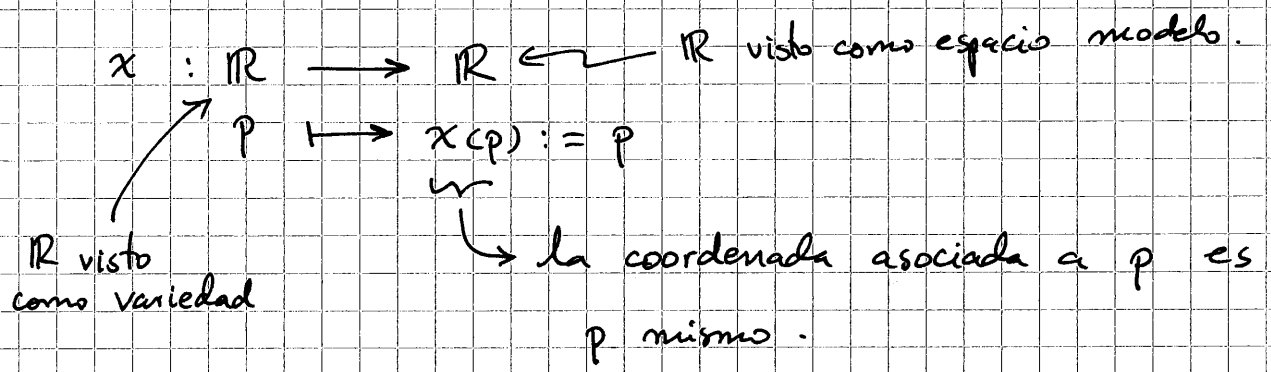 x : ℝ ⟶ ℝ ℝ visto como espacio modelo.
p ⟼ x(p) := p
ℝ visto
como variedad
la coordenada asociada a p es
p mismo.